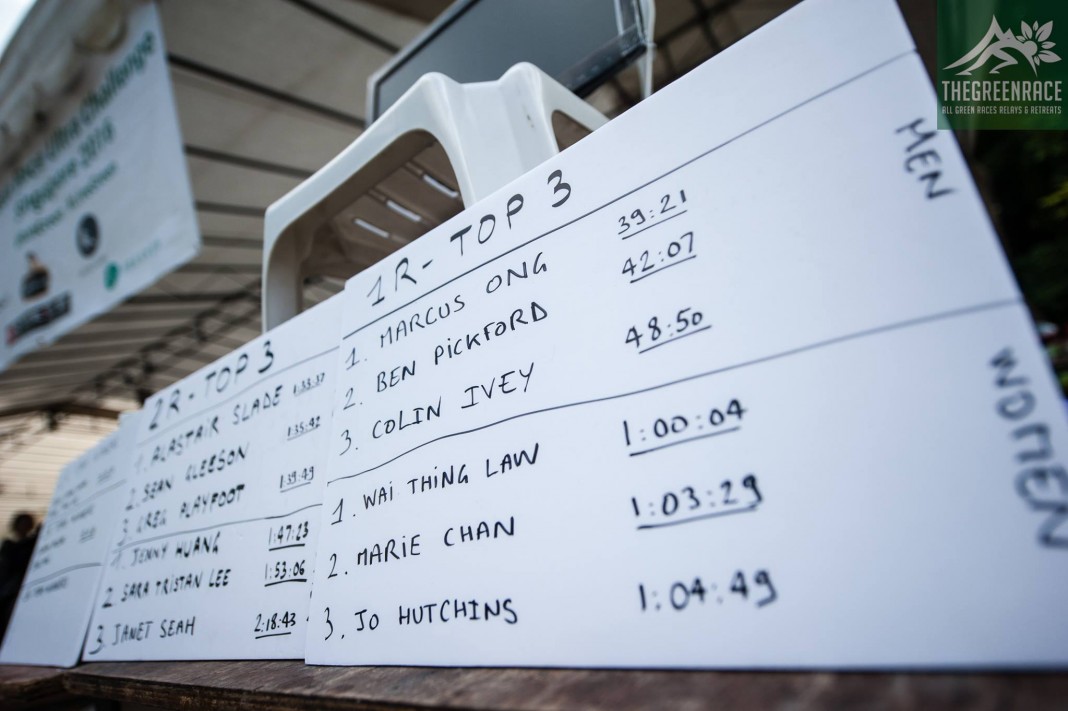 THEGREENRACE
ALL GREEN RACES RELAYS & RETREATS
Ultra Challenge
Singapore 2015
1R - TOP 3
MEN
1. MARCUS ONG 39:21
2. BEN PICKFORD 42:07
3. COLIN IVEY 48:50
WOMEN
1. WAI THING LAW 1:00:04
2. MARIE CHAN 1:03:29
3. JO HUTCHINS 1:04:49
2R - TOP 3
1. ALASTAIR SLADE 1:33:37
2. SEAN GLEESON 1:35:42
3. GREG PLAYFOOT 1:39:49
1. JENNY HUANG 1:47:23
2. SARA TRISTAN LEE 1:53:06
3. JANET SEAH 2:18:43